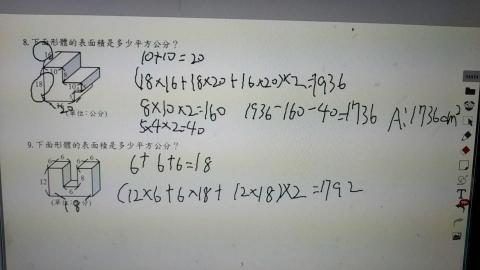 8. 下面形體的表面積是多少平方公分？
16
10
18
10
20
(單位:公分)
10+10=20
(18×16+18×20+16×20)×2=1936
8×10×2=160 1936-160-40=1736 A:1736cm²
5×4×2=40
9. 下面形體的表面積是多少平方公分？
6 6 6
12 8
6
18
(單位:公分)
6+6+6=18
(12×6+6×18+12×18)×2=792